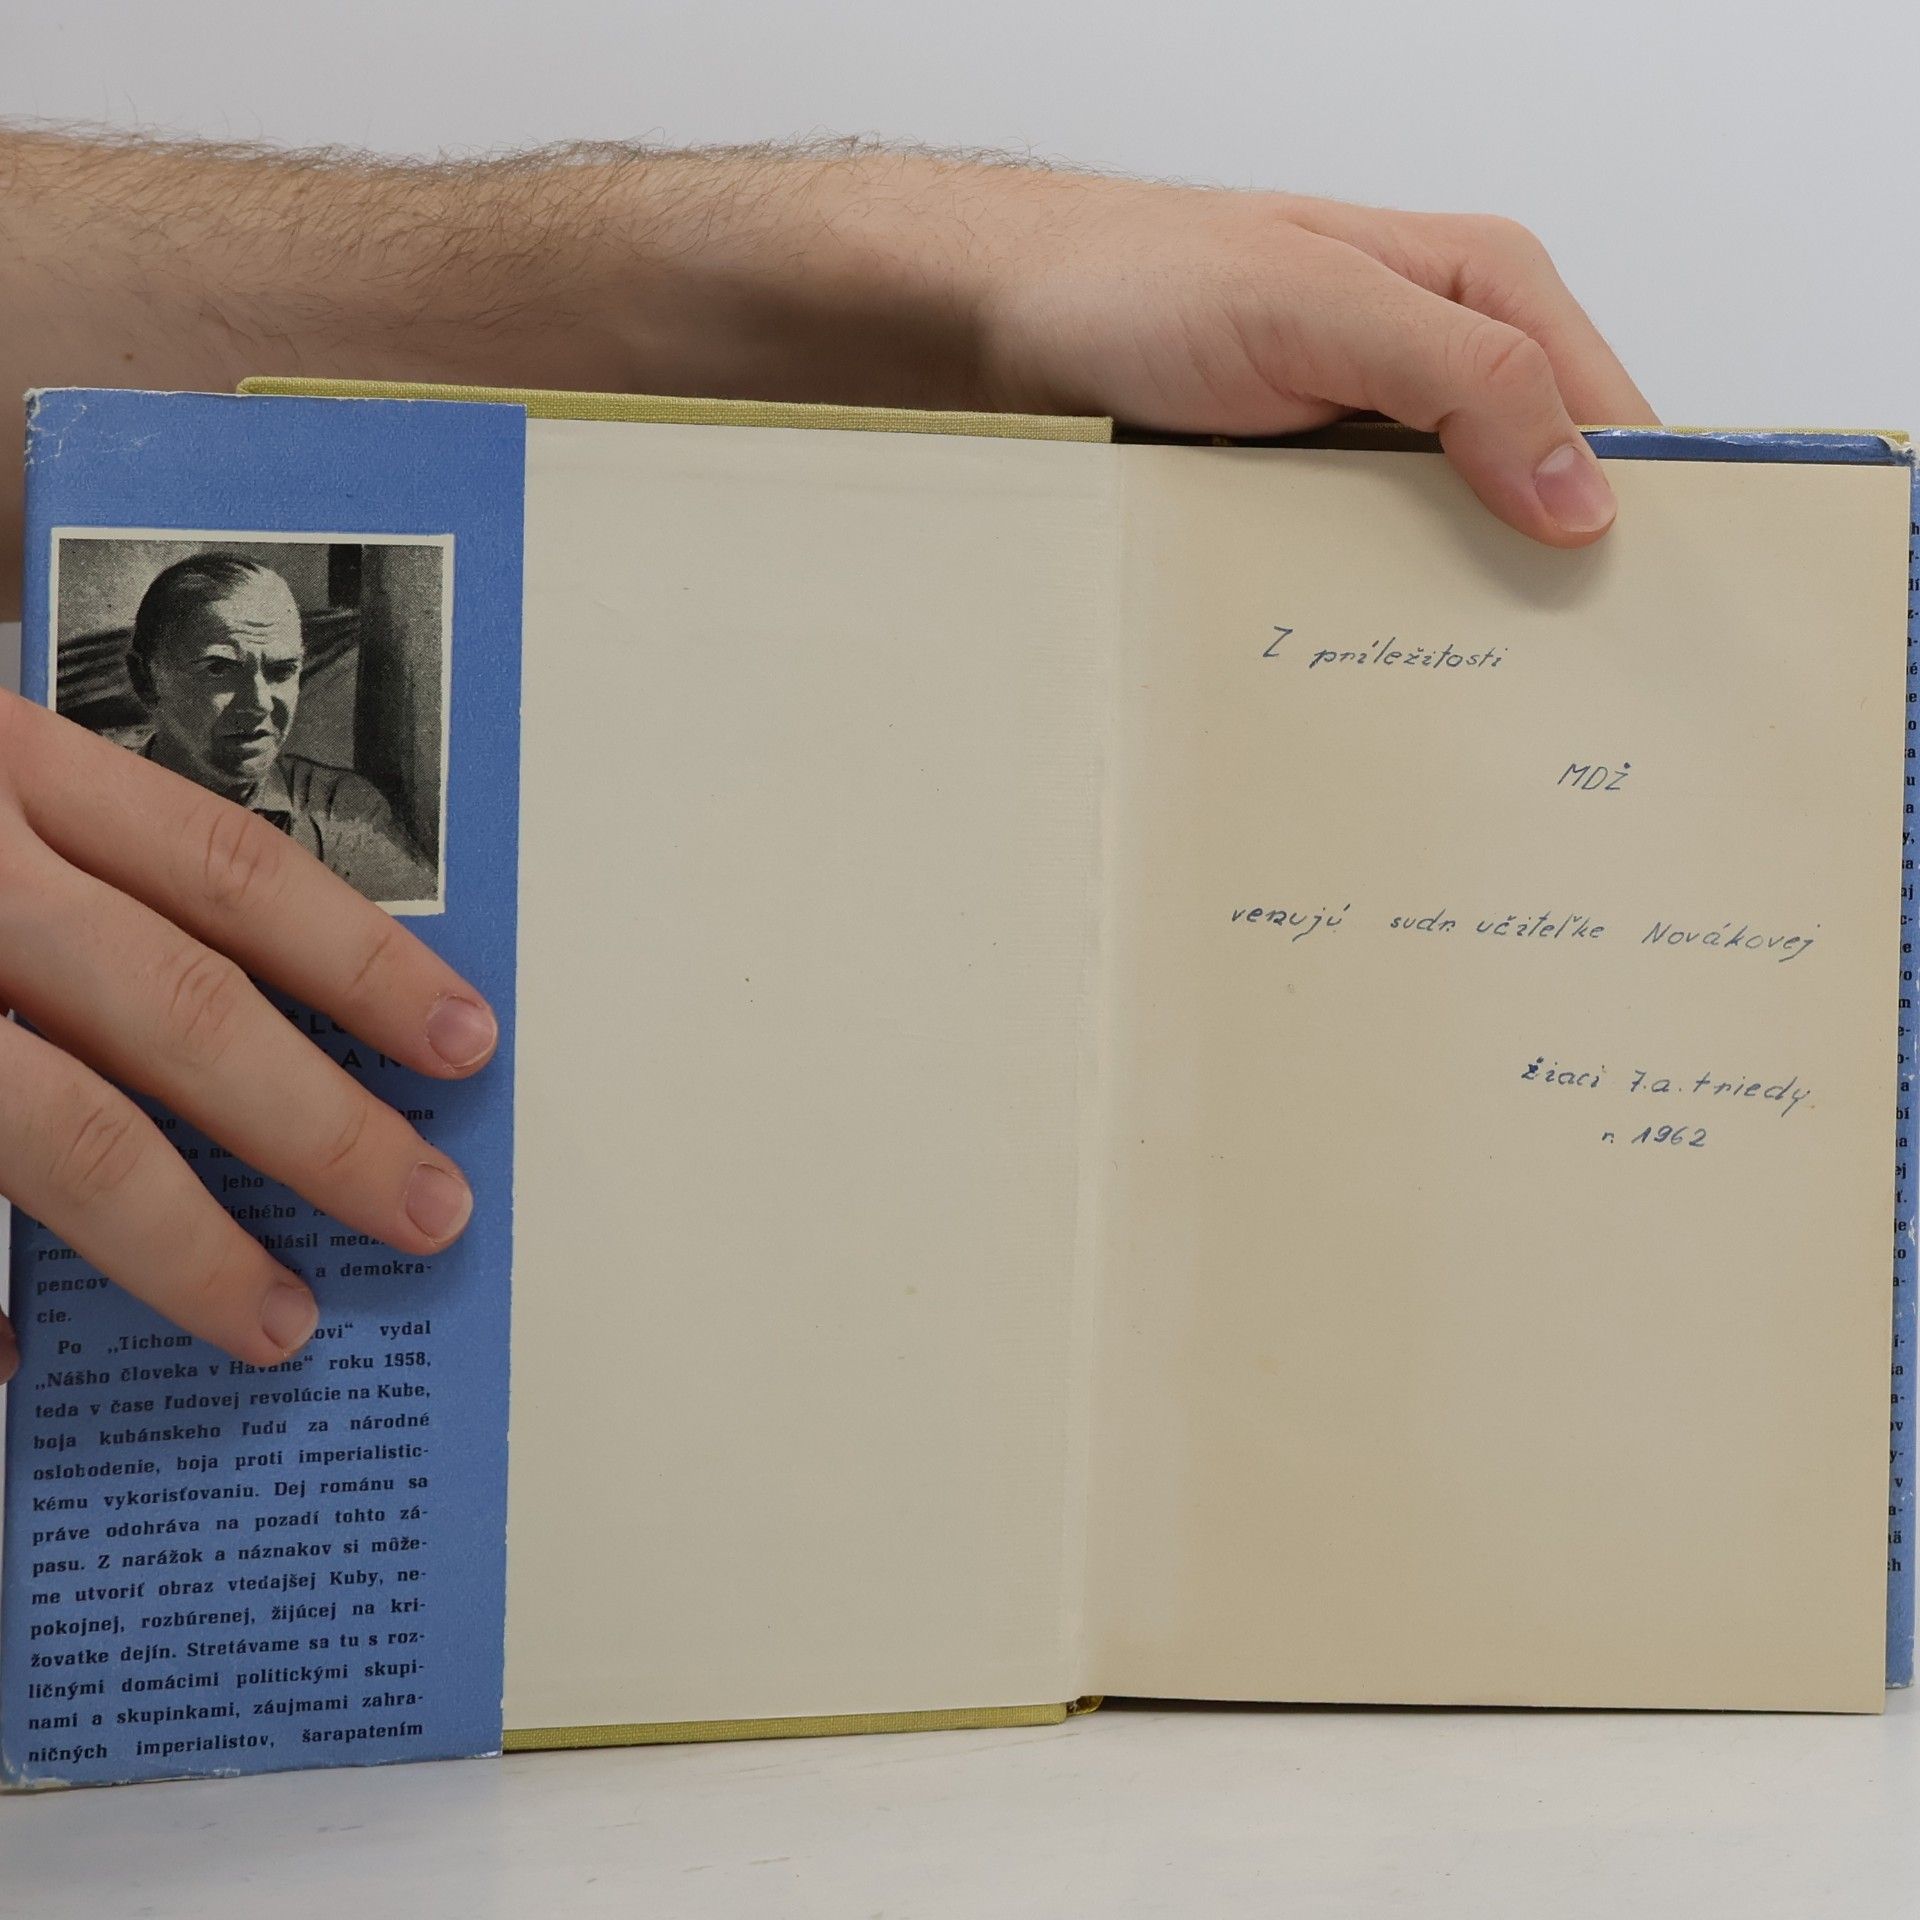 jeho
Tichého
a demokra-
cie.
Po „Tichom vydal
„Nášho človeka v Havane“ roku 1958,
teda v čase ľudovej revolúcie na Kube,
boja kubánskeho ľudu za národné
oslobodenie, boja proti imperialistic-
kému vykorisťovaniu. Dej románu sa
práve odohráva na pozadí tohto zá-
pasu. Z narážok a náznakov si môže-
me utvoriť obraz vtedajšej Kuby, ne-
pokojnej, rozbúrenej, žijúcej na kri-
žovatke dejín. Stretávame sa tu s roz-
ličnými domácimi politickými skupi-
nami a skupinkami, záujmami zahra-
ničných imperialistov, šarapatením
Z príležitosti
MDŽ
venujú sudr. učiteľke Novákovej
žiaci 7.a. triedy
r. 1962